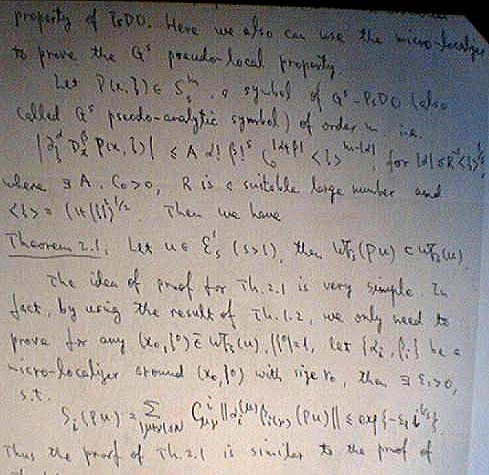 property of PsDO. Here we also can use the micro-localizer
to prove the Gˢ pseudo-local property.
Let P(x,ξ) ∈ Sₛᵐ, a symbol of Gˢ-PsDO (also
called Gˢ pseudo-analytic symbol) of order m i.e.
|∂_ξ^α D_x^β P(x,ξ)| ≤ A α! β!ˢ C₀^{|α+β|} <ξ>^{m-|α|}, for |α| ≤ R⁻¹<ξ>^{1/s}
where ∃ A, C₀>0, R is a suitable large number and
<ξ> = (1+|ξ|²)^{1/2}. Then we have
Theorem 2.1. Let u ∈ Ɛ'ₛ (s>1), then WFₛ(Pu) ⊂ WFₛ(u).
The idea of proof for Th.2.1 is very simple. In
fact, by using the result of Th.1.2, we only need to
prove for any (x₀,ξ⁰) ∉ WFₛ(u), |ξ⁰|=1, let {αᵢ, βᵢ} be a
micro-localizer around (x₀,ξ⁰) with size r₀, then ∃ ε₁>0,
s.t.
Sᵢ(Pu) = Σ ‖ (Pu)‖ ≤ exp{-ε₁ i^{1/s}}.
Thus the proof of Th.2.1 is similar to the proof of